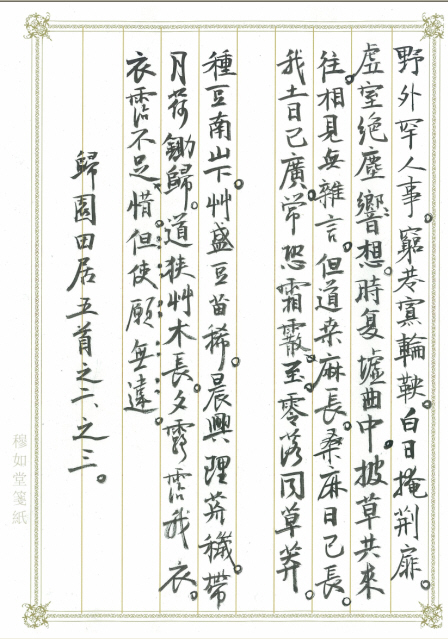 野外罕人事。窮巷寡輪鞅。白日掩荆扉。
虛室絶塵響想。時复墟曲中。披草共來
往。相見無雜言。但道桒麻長。桑麻日已長。
我土日已廣。常恐霜霰至。零落同草莽。
種豆南山下。艸盛豆苗稀。晨興理荒穢。帶
月荷鋤歸。道狹艸木長。夕露霑我衣。
衣霑不足惜。但使願無違。
歸園田居五首之二、之三。
穆如堂箋紙